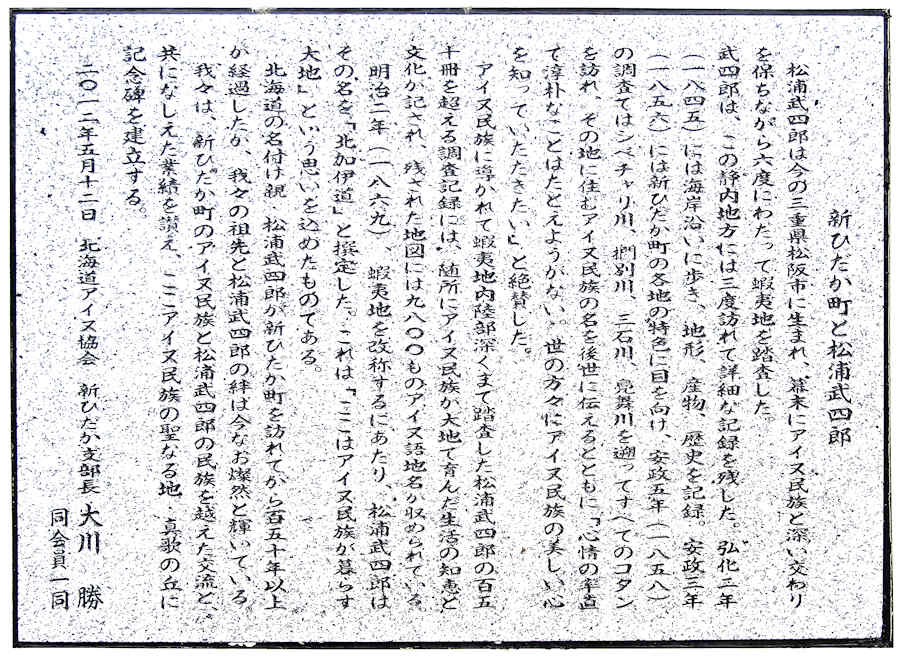 新ひだか町と松浦武四郎
松浦武四郎は今の三重県松阪市に生まれ、幕末にアイヌ民族と深い交わり
を保ちながら六度にわたって蝦夷地を踏査した。
武四郎は、この静内地方には三度訪れて詳細な記録を残した。弘化二年
（一八四五）には海岸沿いに歩き、地形、産物、歴史を記録。安政三年
（一八五六）には新ひだか町の各地の特色に目を向け、安政五年（一八五八）
の調査ではシベチャリ川、捫別川、三石川、鳧舞川を遡ってすべてのコタン
を訪れ、その地に住むアイヌ民族の名を後世に伝えるとともに「心情の率直
で淳朴なことはたとえようがない。世の方々にアイヌ民族の美しい心
を知っていただきたい」と絶賛した。
アイヌ民族に導かれて蝦夷地内陸部深くまで踏査した松浦武四郎の百五
十冊を超える調査記録には、随所にアイヌ民族が大地で育んだ生活の知恵と
文化が記され、残された地図には九八〇〇ものアイヌ語地名が収められている。
明治二年（一八六九）、蝦夷地を改称するにあたり、松浦武四郎は
その名を「北加伊道」と撰定した。これは「ここはアイヌ民族が暮らす
大地」という思いを込めたものである。
北海道の名付け親、松浦武四郎が新ひだか町を訪れてから百五十年以上
が経過したが、我々の祖先と松浦武四郎の絆は今なお燦然と輝いている。
我々は、新ひだか町のアイヌ民族と松浦武四郎の民族を越えた交流と、
共になしえた業績を讃え、ここアイヌ民族の聖なる地、真歌の丘に
記念碑を建立する。
二〇一二年五月十二日　北海道アイヌ協会　新ひだか支部長　大川　勝
同会員一同